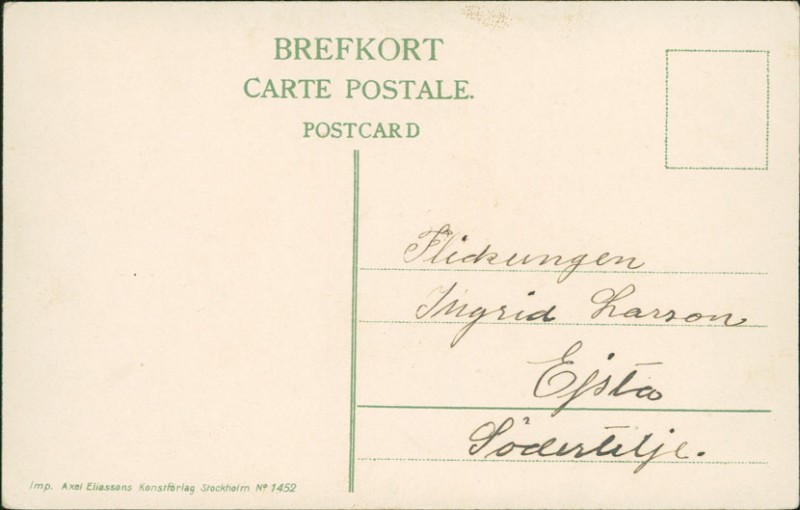 BREFKORT
CARTE POSTALE.
POSTCARD
Flickungen
Ingrid Larson
Ejsta
Södertelje.
Imp. Axel Eliassons Konstförlag Stockholm Nº 1452